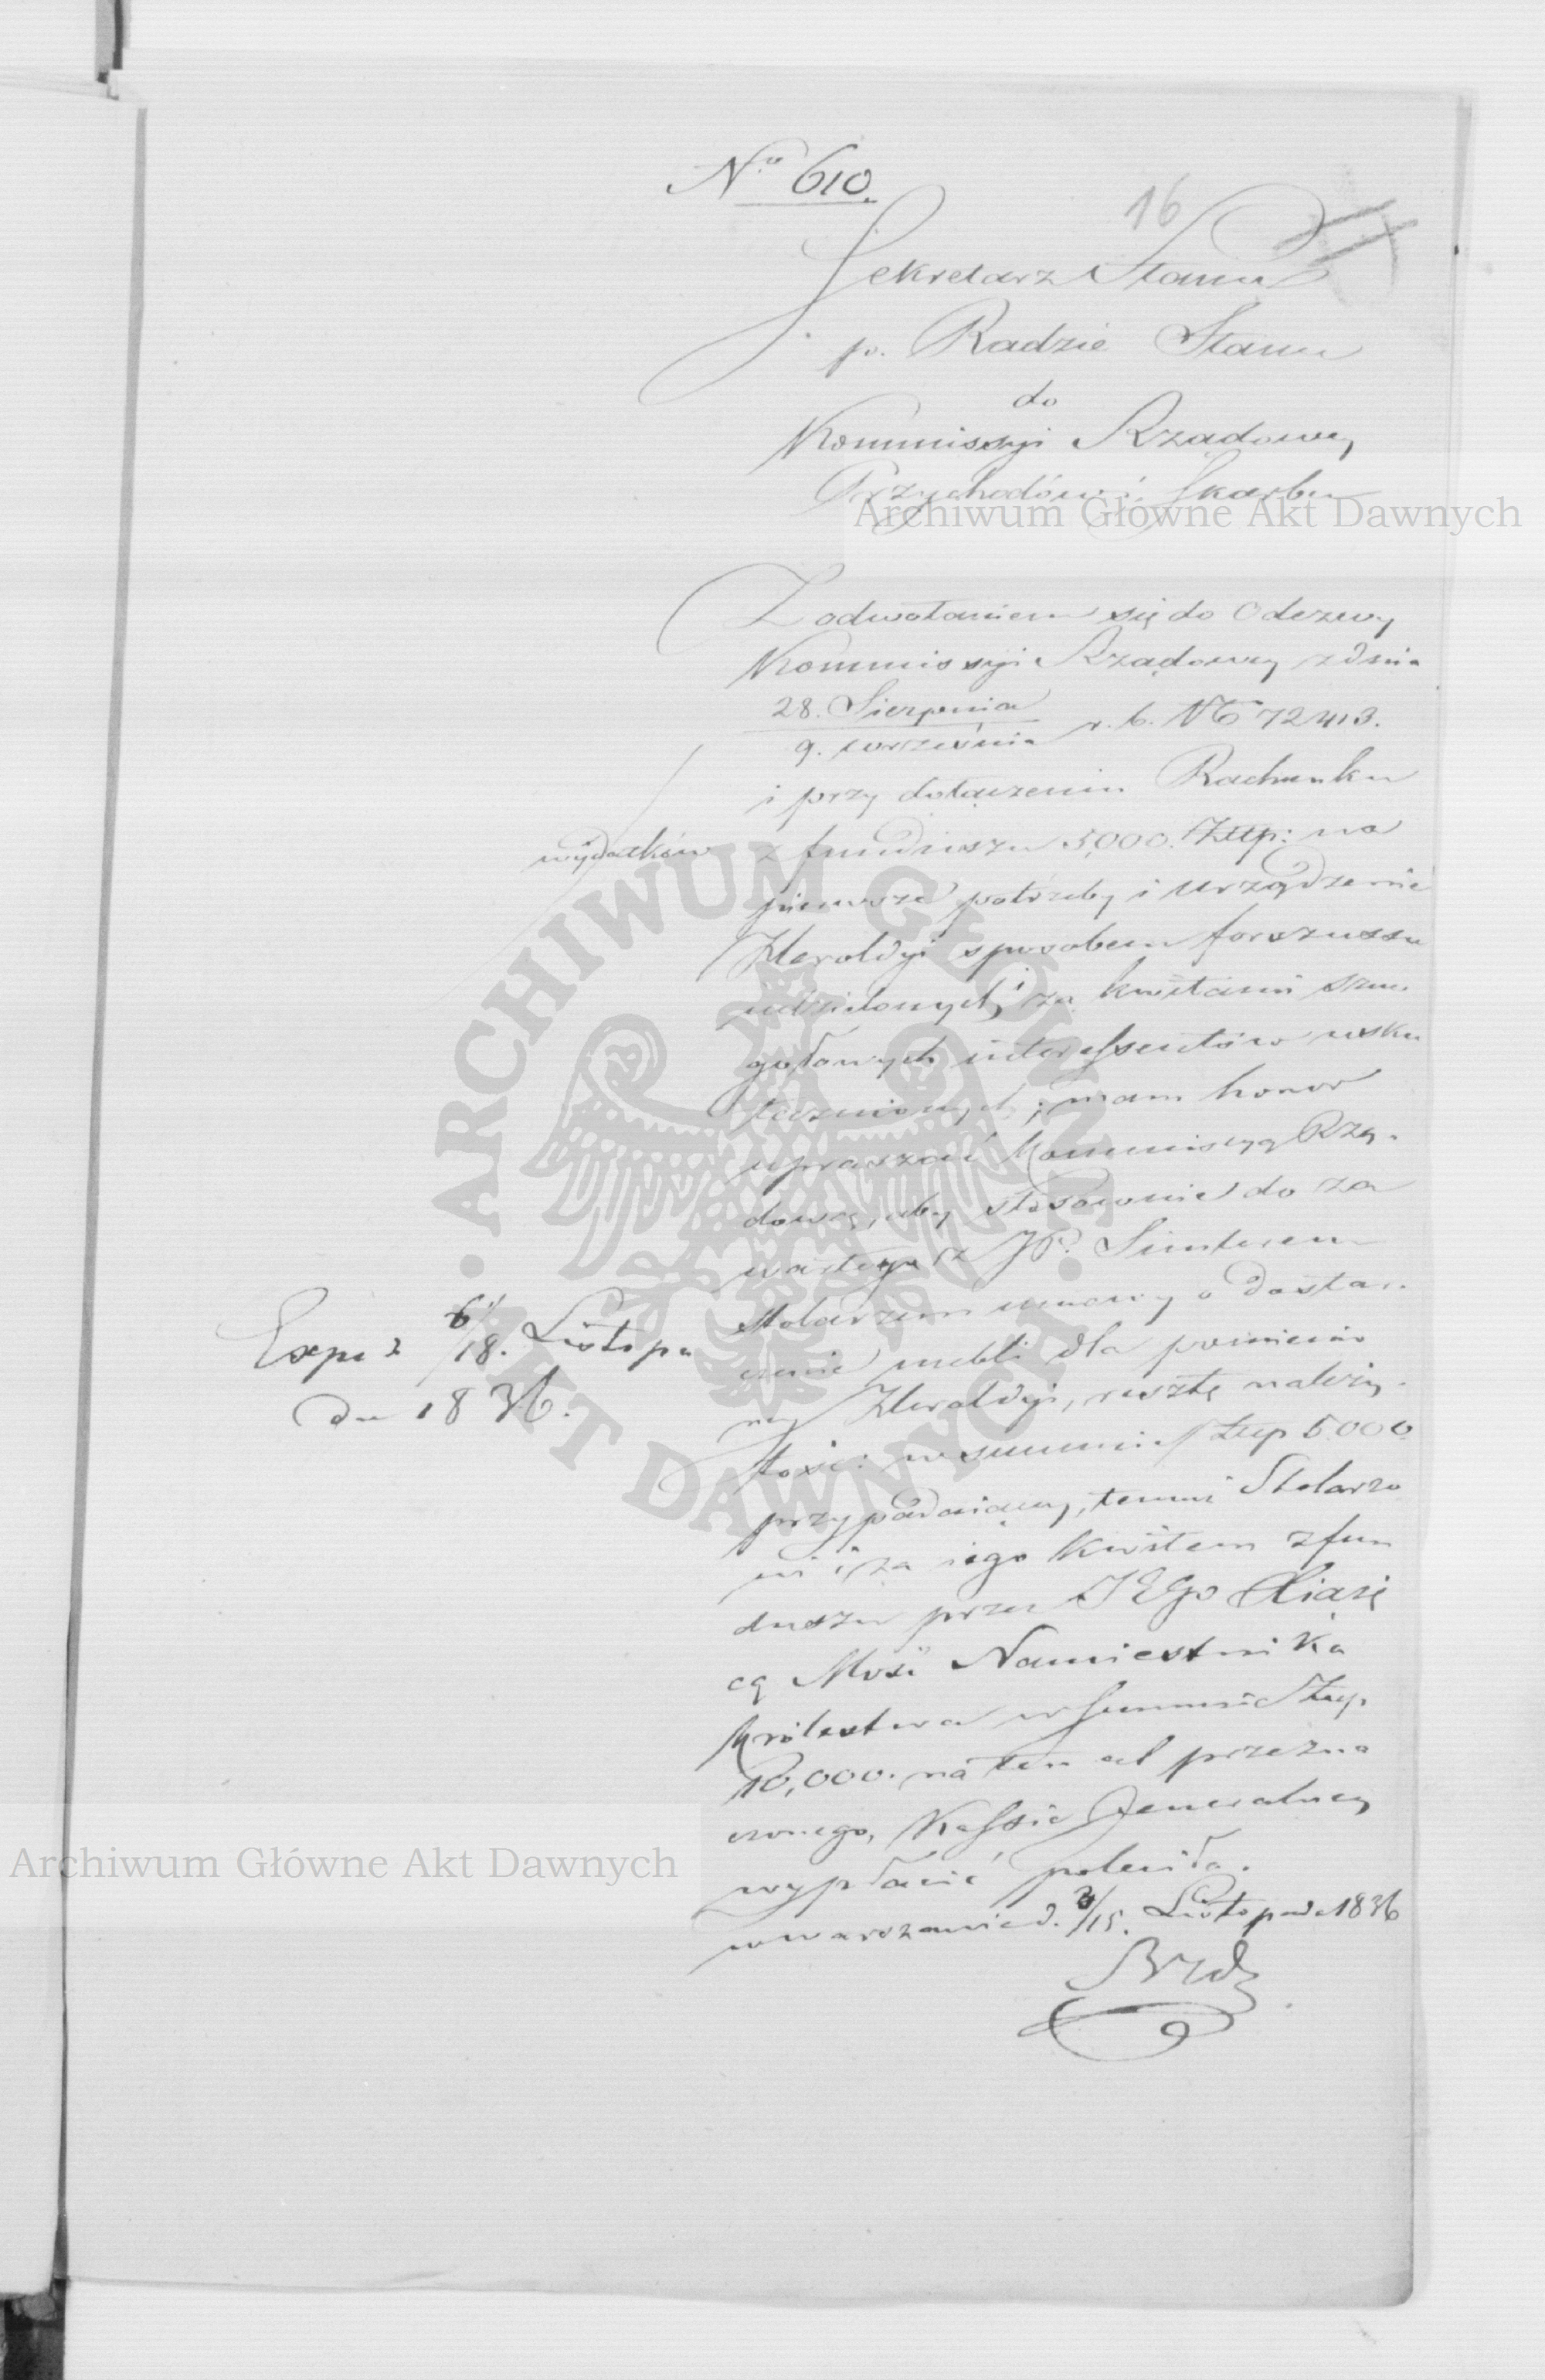 No 610.
16
Sekretarz Stanu
p. Radzie Stanu
do
Kommissyi Rządowey
Przychodów i Skarbu
Archiwum Główne Akt Dawnych
Z odwołaniem się do Odezwy
Kommissyi Rządowey z dnia
28. Sierpnia
9. września r. b. No 72413.
i przy dołączeniu Rachunku
wydatków
z funduszu 5,000. Złtp: na
pierwsze potrzeby i urządzenie
Heroldyi sposobem forszussu
udzielonych, i za kwitami szcze
gołowych interessentów usku
tecznionych; mam honor
upraszać Kommissyą Rzą-
dową, aby stosownie do za
wartey z JP. Simlerem
Stolarzem umowy o dostar-
czenie mebli dla pomienio
ney Heroldyi, resztę należy-
tości: w summie złtp 5000
przypadaiącey, temuż Stolarzo
wi i za iego kwitem z fun
duszu przez JEgo Xiążę
cą Mość Namiestnika
Królestwa w summie Złtp.
10,000. na ten cel przezna
czonego, Kassie Jeneralney
wypłacić poleciła.
w Warszawie d. 3/15. Listopada 1836
Exped 6/18. Listopa
da 1836.
ARCHIWUM GŁÓWNE
AKT DAWNYCH
Archiwum Główne Akt Dawnych